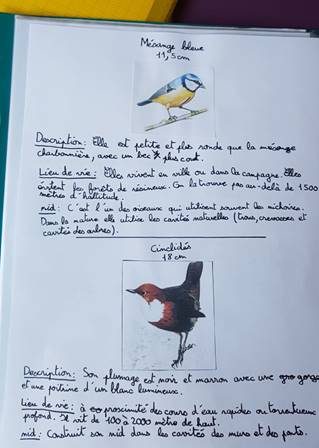 Mésange bleue
11,5cm
Description: Elle est petite et plus ronde que la mésange
charbonnière, avec un bec plus court.
Lieu de vie: Elles vivent en ville ou dans la campagne. Elles
évitent les forêts de résineux. On la trouve pas au-delà de 1500
mètres d'altitude.
nid: C'est l'un des oiseaux qui utilisent souvent les nichoirs.
Dans la nature elle utilise les cavités naturelles (trous, crevasses et
cavités des arbres).
Cinclidés
18cm
Description: Son plumage est noir et marron avec une gorge
et une poitrine d'un blanc lumineux.
Lieu de vie: à proximité des cours d'eau rapides ou torrentueux
profond. Il vit de 100 à 2000 mètre de haut.
nid: Construit son nid dans les cavités des murs et des ponts.